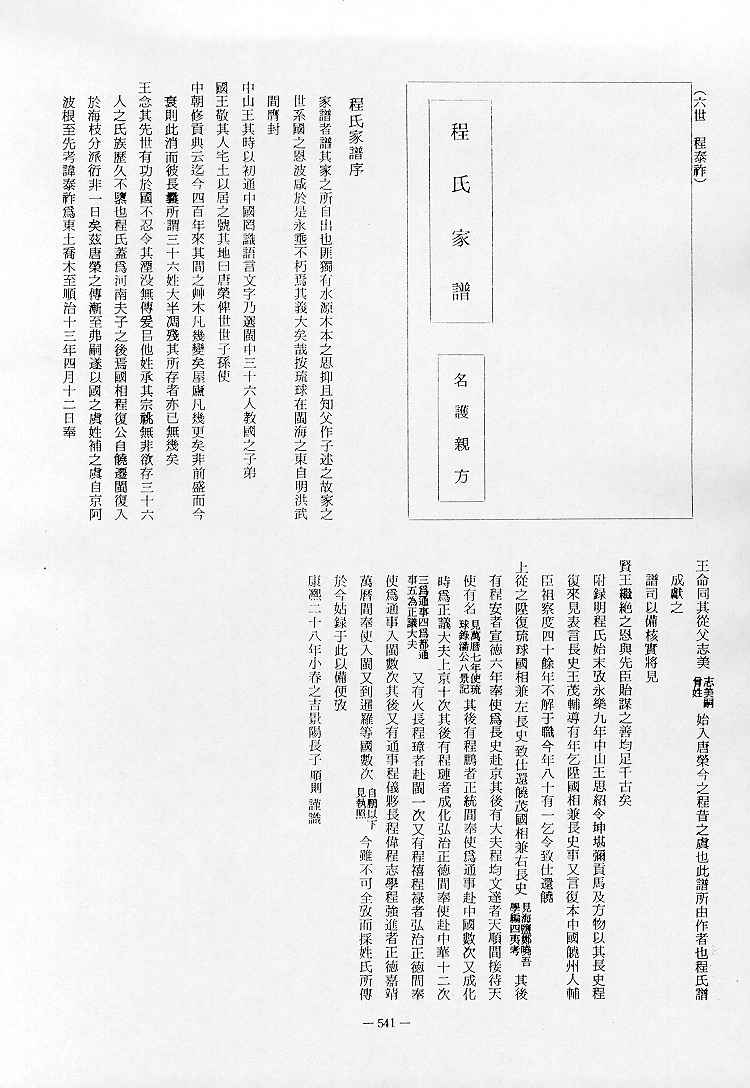 (六世 程泰祚)
程氏家譜
名護親方
程氏家譜序
家譜者譜其家之所自出也匪獨有水源木本之思抑且知父作子述之故家之
世系國之恩波咸於是永垂不朽焉其義大矣哉按琉球在閩海之東自明洪武
間膺封
中山王其時以初通中國罔識語言文字乃選閩中三十六人教國之子弟
國王敬其人宅土以居之號其地曰唐榮俾世世子孫使
中朝修貢典云迄今四百年來其間之艸木凡幾變矣屋廬凡幾更矣非前盛而今
衰則此消而彼長曩所謂三十六姓大半凋殘其所存者亦已無幾矣
王念其先世有功於國不忍令其湮没無傳爰㠯他姓承其宗祧無非欲存三十六
人之氏族歷久不墜也程氏蓋爲河南夫子之後焉國相程復公自饒遷閩復入
於海枝分派衍非一日矣茲唐榮之傳漸至弗嗣遂以國之虞姓補之虞自京阿
波根至先考諱泰祚爲東土喬木至順治十三年四月十二日奉
王命同其從父志美 志美嗣曾姓 始入唐榮今之程昔之虞也此譜所由作者也程氏譜
成獻之
譜司以備核實將見
賢王繼絶之恩與先臣貽謀之善均足千古矣
附録明程氏始末攷永樂九年中山王思紹令坤堪彌貢馬及方物以其長史程
復來見表言長史王茂輔導有年乞陞國相兼長史事又言復本中國饒州人輔
臣祖察度四十餘年不解于職今年八十有一乞令致仕還饒
上從之陞復琉球國相兼左長史致仕還饒茂國相兼右長史 見海鹽鄭曉吾學編四夷考 其後
有程安者宣德六年奉使爲長史赴京其後有大夫程均文達者天順間接待天
使有名 見萬曆七年使琉球錄潘公八景記 其後有程鵬者正統間奉使爲通事赴中國數次又成化
時爲正議大夫上京十次其後有程璉者成化弘治正德間奉使赴中華十二次
三爲通事四爲都通事五為正議大夫 又有火長程璋者赴閩一次又有程禧程祿者弘治正德間奉
使爲通事入閩數次其後又有通事程儀夥長程偉程志學程強進者正德嘉靖
萬曆間奉使入閩又到暹羅等國數次 自鵬以下見執照 今雖不可全攷而採姓氏所傳
於今姑録于此以備便攷
康熙二十八年小春之吉景陽長子 順則 謹識
— 541 —